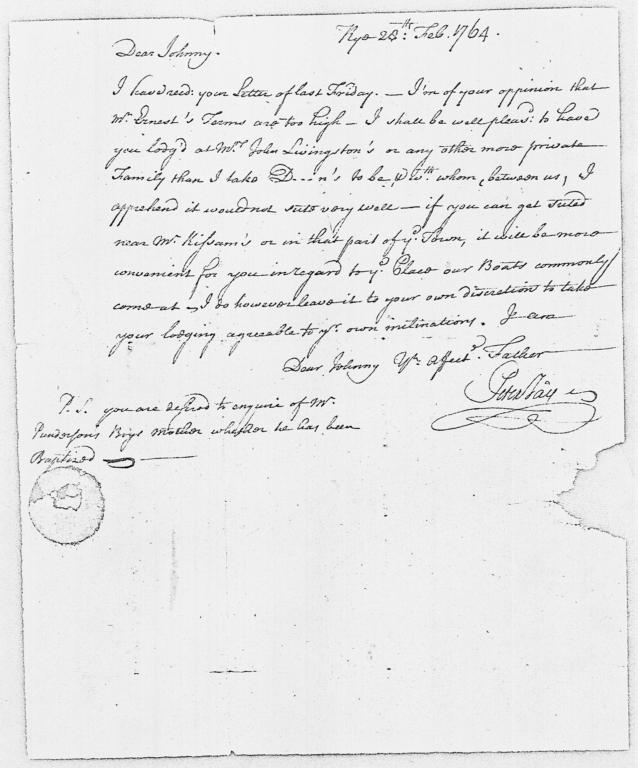 Rye 28th. Feb. 1764.
Dear Johnny.
I have recd: your Letter of last Friday. — I'm of your oppinion that
Mr. Ernest's Terms are too high — I shall be well pleasd: to have
you lodg'd at Mrs. John Livingston's or any other more private
Family than I take D...n's to be, & wth. whom, between us, I
apprehend it would not sute very well — if you can get suted
near Mr. Kissam's or in that part of ye. Town, it will be more
convenient for you in regard to ye. Place our Boats commonly
come at — I do however leave it to your own discretion to take
your lodging agreable to yr. own inclinations. I am
Dear Johnny Yr. affect. Father
Peter Jay
P. S. you are desired to enquire of Mr.
Punderson's Boys Mother whether he has been
Baptized —